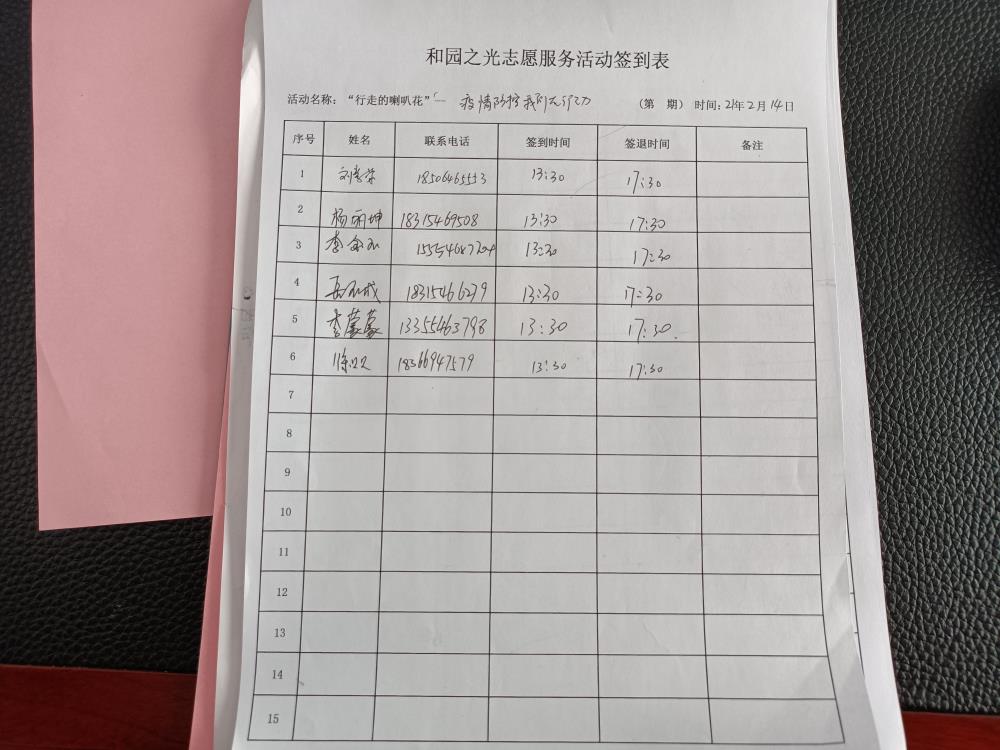 和园之光志愿服务活动签到表
活动名称:“行走的喇叭花”— 疫情防控我们在行动 (第 期) 时间:21年2月14日
序号 姓名 联系电话 签到时间 签退时间 备注
1 18506465553 13:30 17:30
2 杨丽坤 18315469508 13:30 17:30
3 13:30 17:30
4 18315466279 13:30 17:30
5 李蒙蒙 13355463798 13:30 17:30.
6 18366947579 13:30 17:30
7
8
9
10
11
12
13
14
15